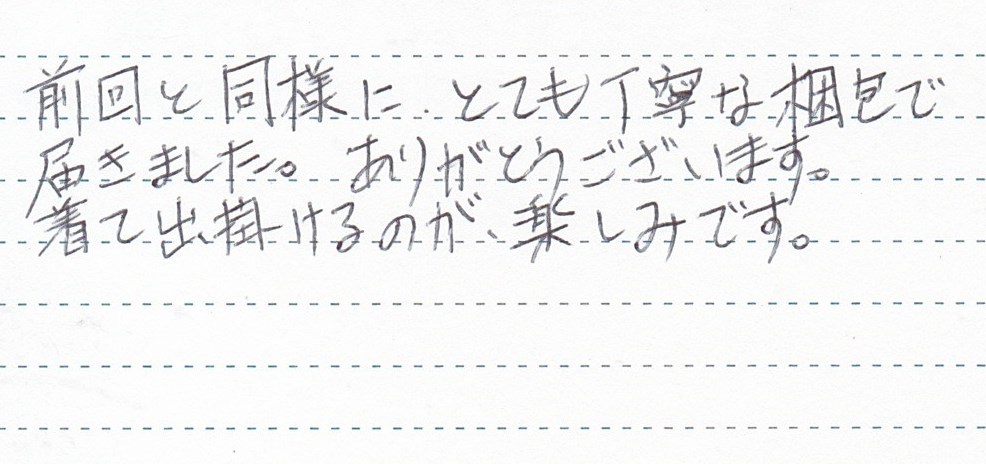 前回と同様に、とても丁寧な梱包で
届きました。ありがとうございます。
着て出掛けるのが、楽しみです。